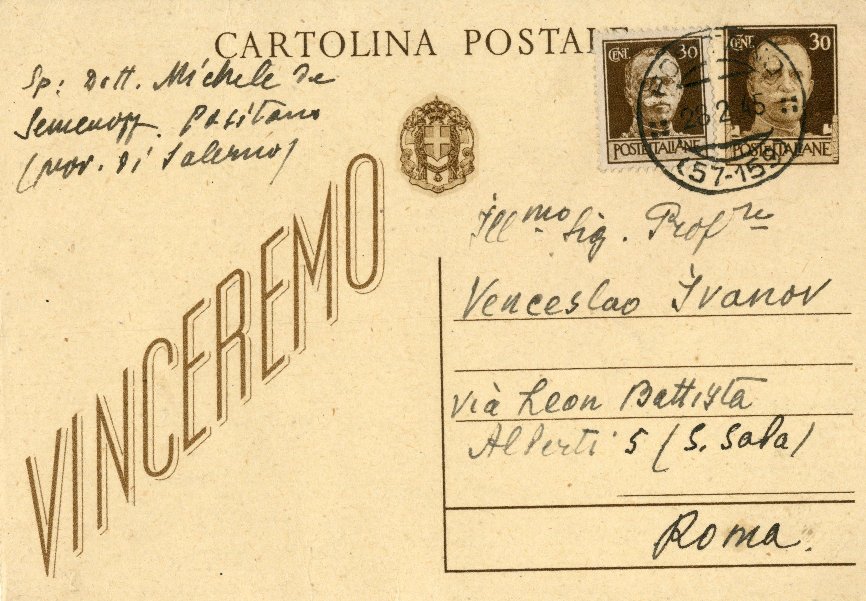 CARTOLINA POSTALE
Sp: Dott. Michele de
Semenoff. Positano
(prov. di Salerno)
CENT. 30
POSTE ITALIANE
CENT. 30
POSTE ITALIANE
28.2.45
(57-159)
VINCEREMO
Ill.mo Sig. Prof.re
Venceslao Ivanov
via Leon Battista
Alberti 5 (S. Saba)
Roma.